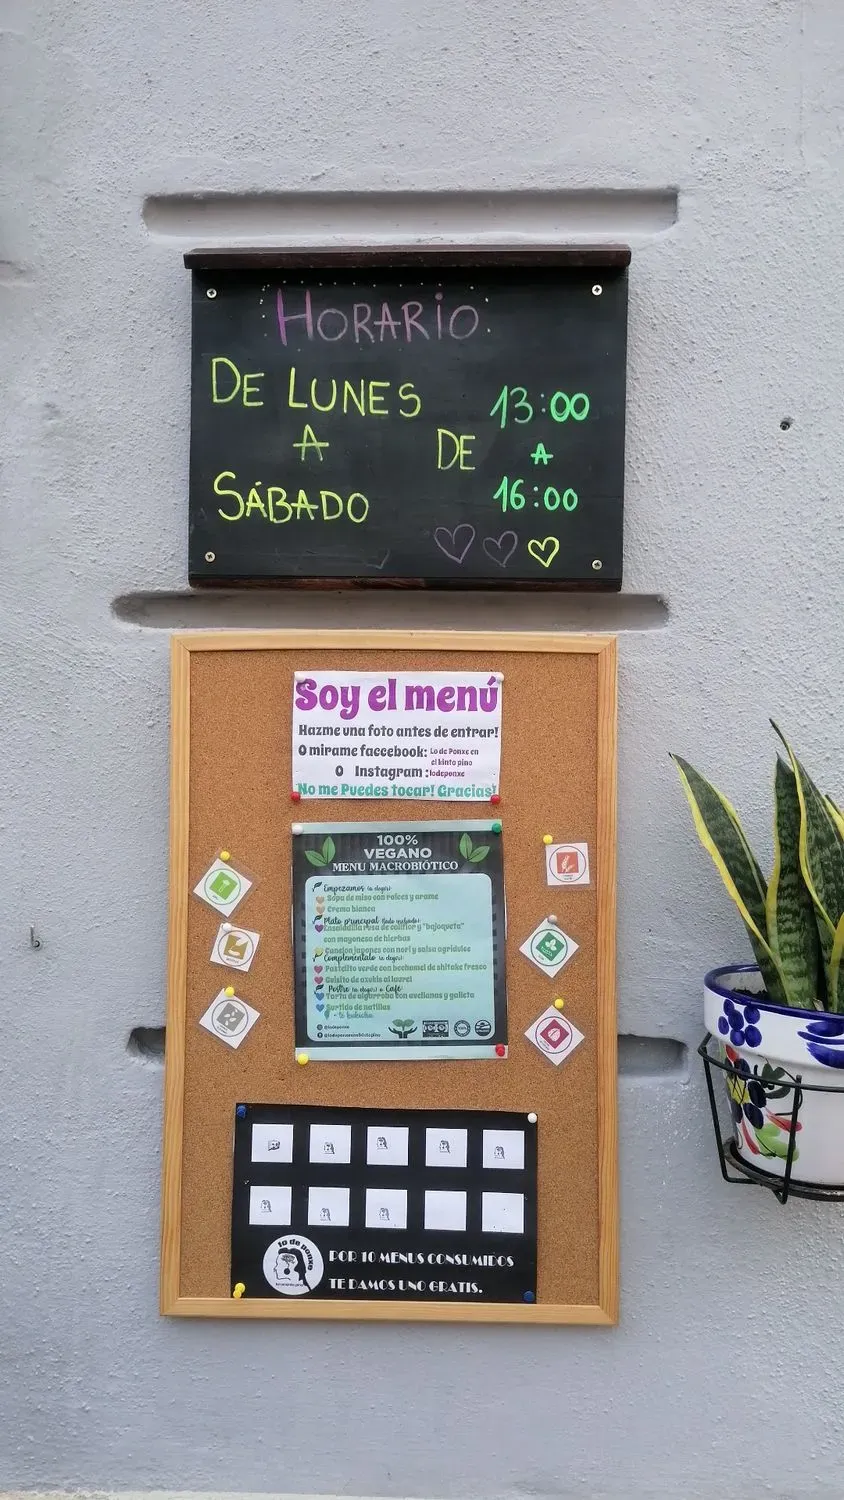 HORARIO
DE LUNES
A
SÁBADO
DE
13:00
A
16:00
Soy el menú
Hazme una foto antes de entrar!
O mirame faccebook: Lo de Ponxe en
el kinto pino
O Instagram : lodeponxe
No me Puedes tocar! Gracias!
100%
VEGANO
MENU MACROBIÓTICO
Empezamos (a elegir)
Sopa de miso con raices y arame
Crema blanca
Plato principal
Ensaladilla rosa de coliflor y "bajoqueta"
con mayonesa de hierbas
Canelon japones con nori y salsa agridulce
Complementalo (a elegir)
Pastelito verde con bechamel de shitake fresco
Guisito de azukis al laurel
Postre (a elegir) o Café
Tarta de algarroba con avellanas y galleta
Surtido de natillas
@lodeponxe
lo de ponxe
POR 10 MENUS CONSUMIDOS
TE DAMOS UNO GRATIS.